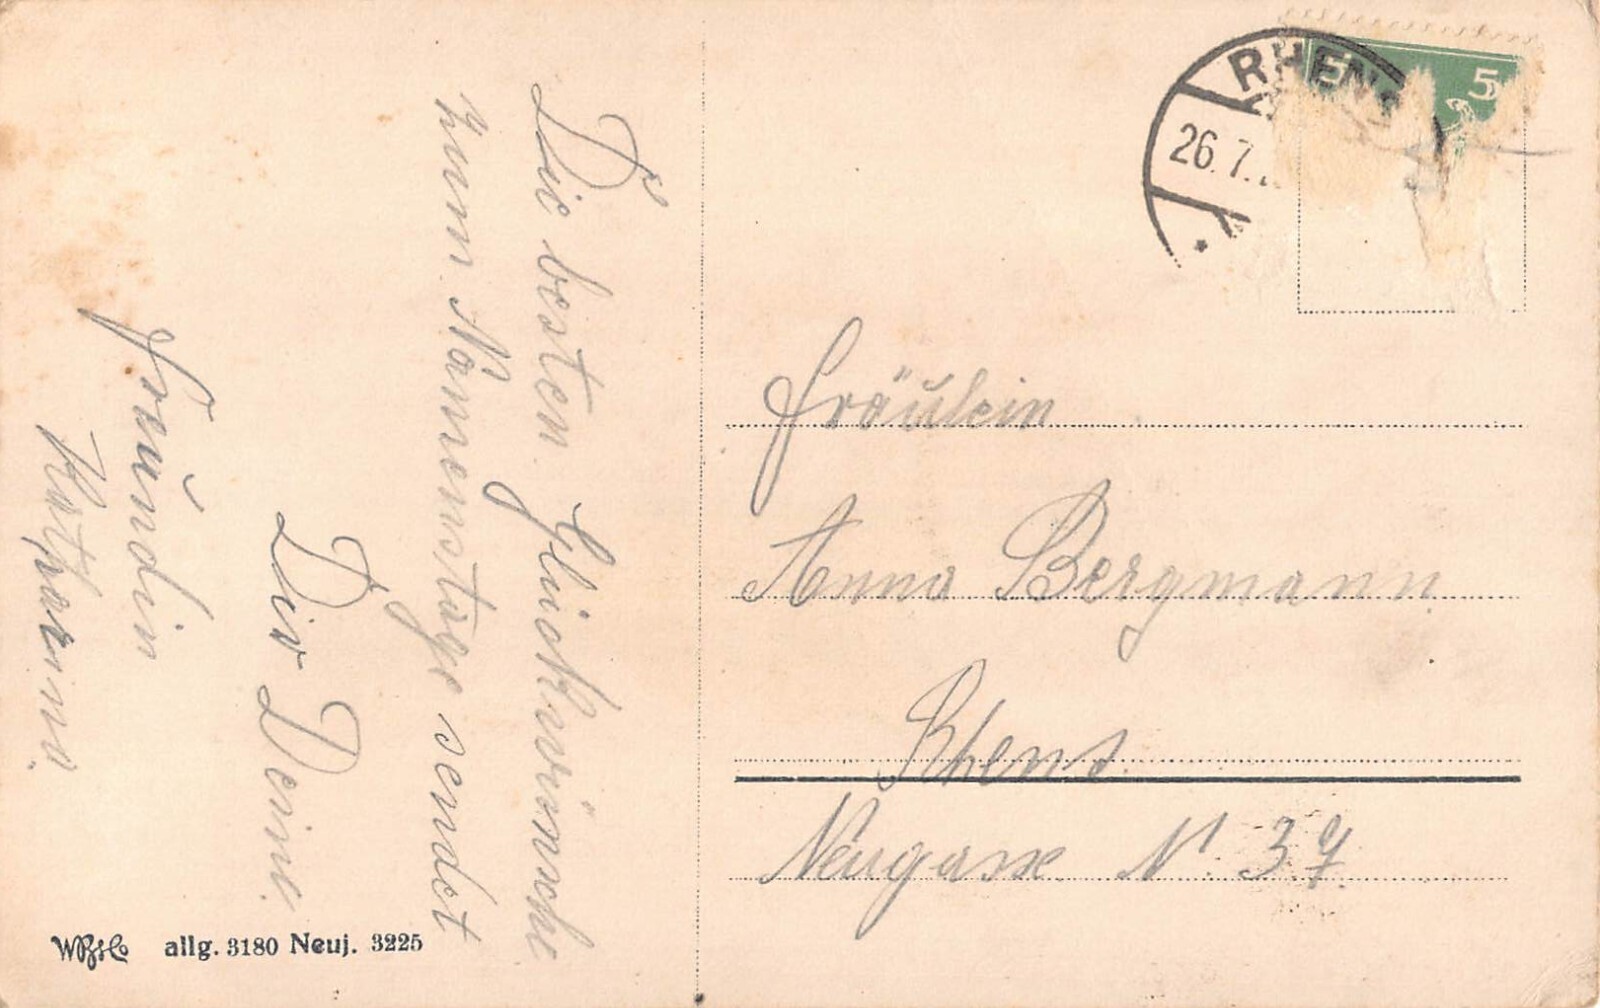 Die besten Glückwünsche
zum Namenstage sendet
Dir Deine
Freundin
Katharina.
RHENS
26.7.
5 5
Fräulein
Anna Bergmann
Rhens.
Neugasse N. 37.
allg. 3180 Neuj. 3225